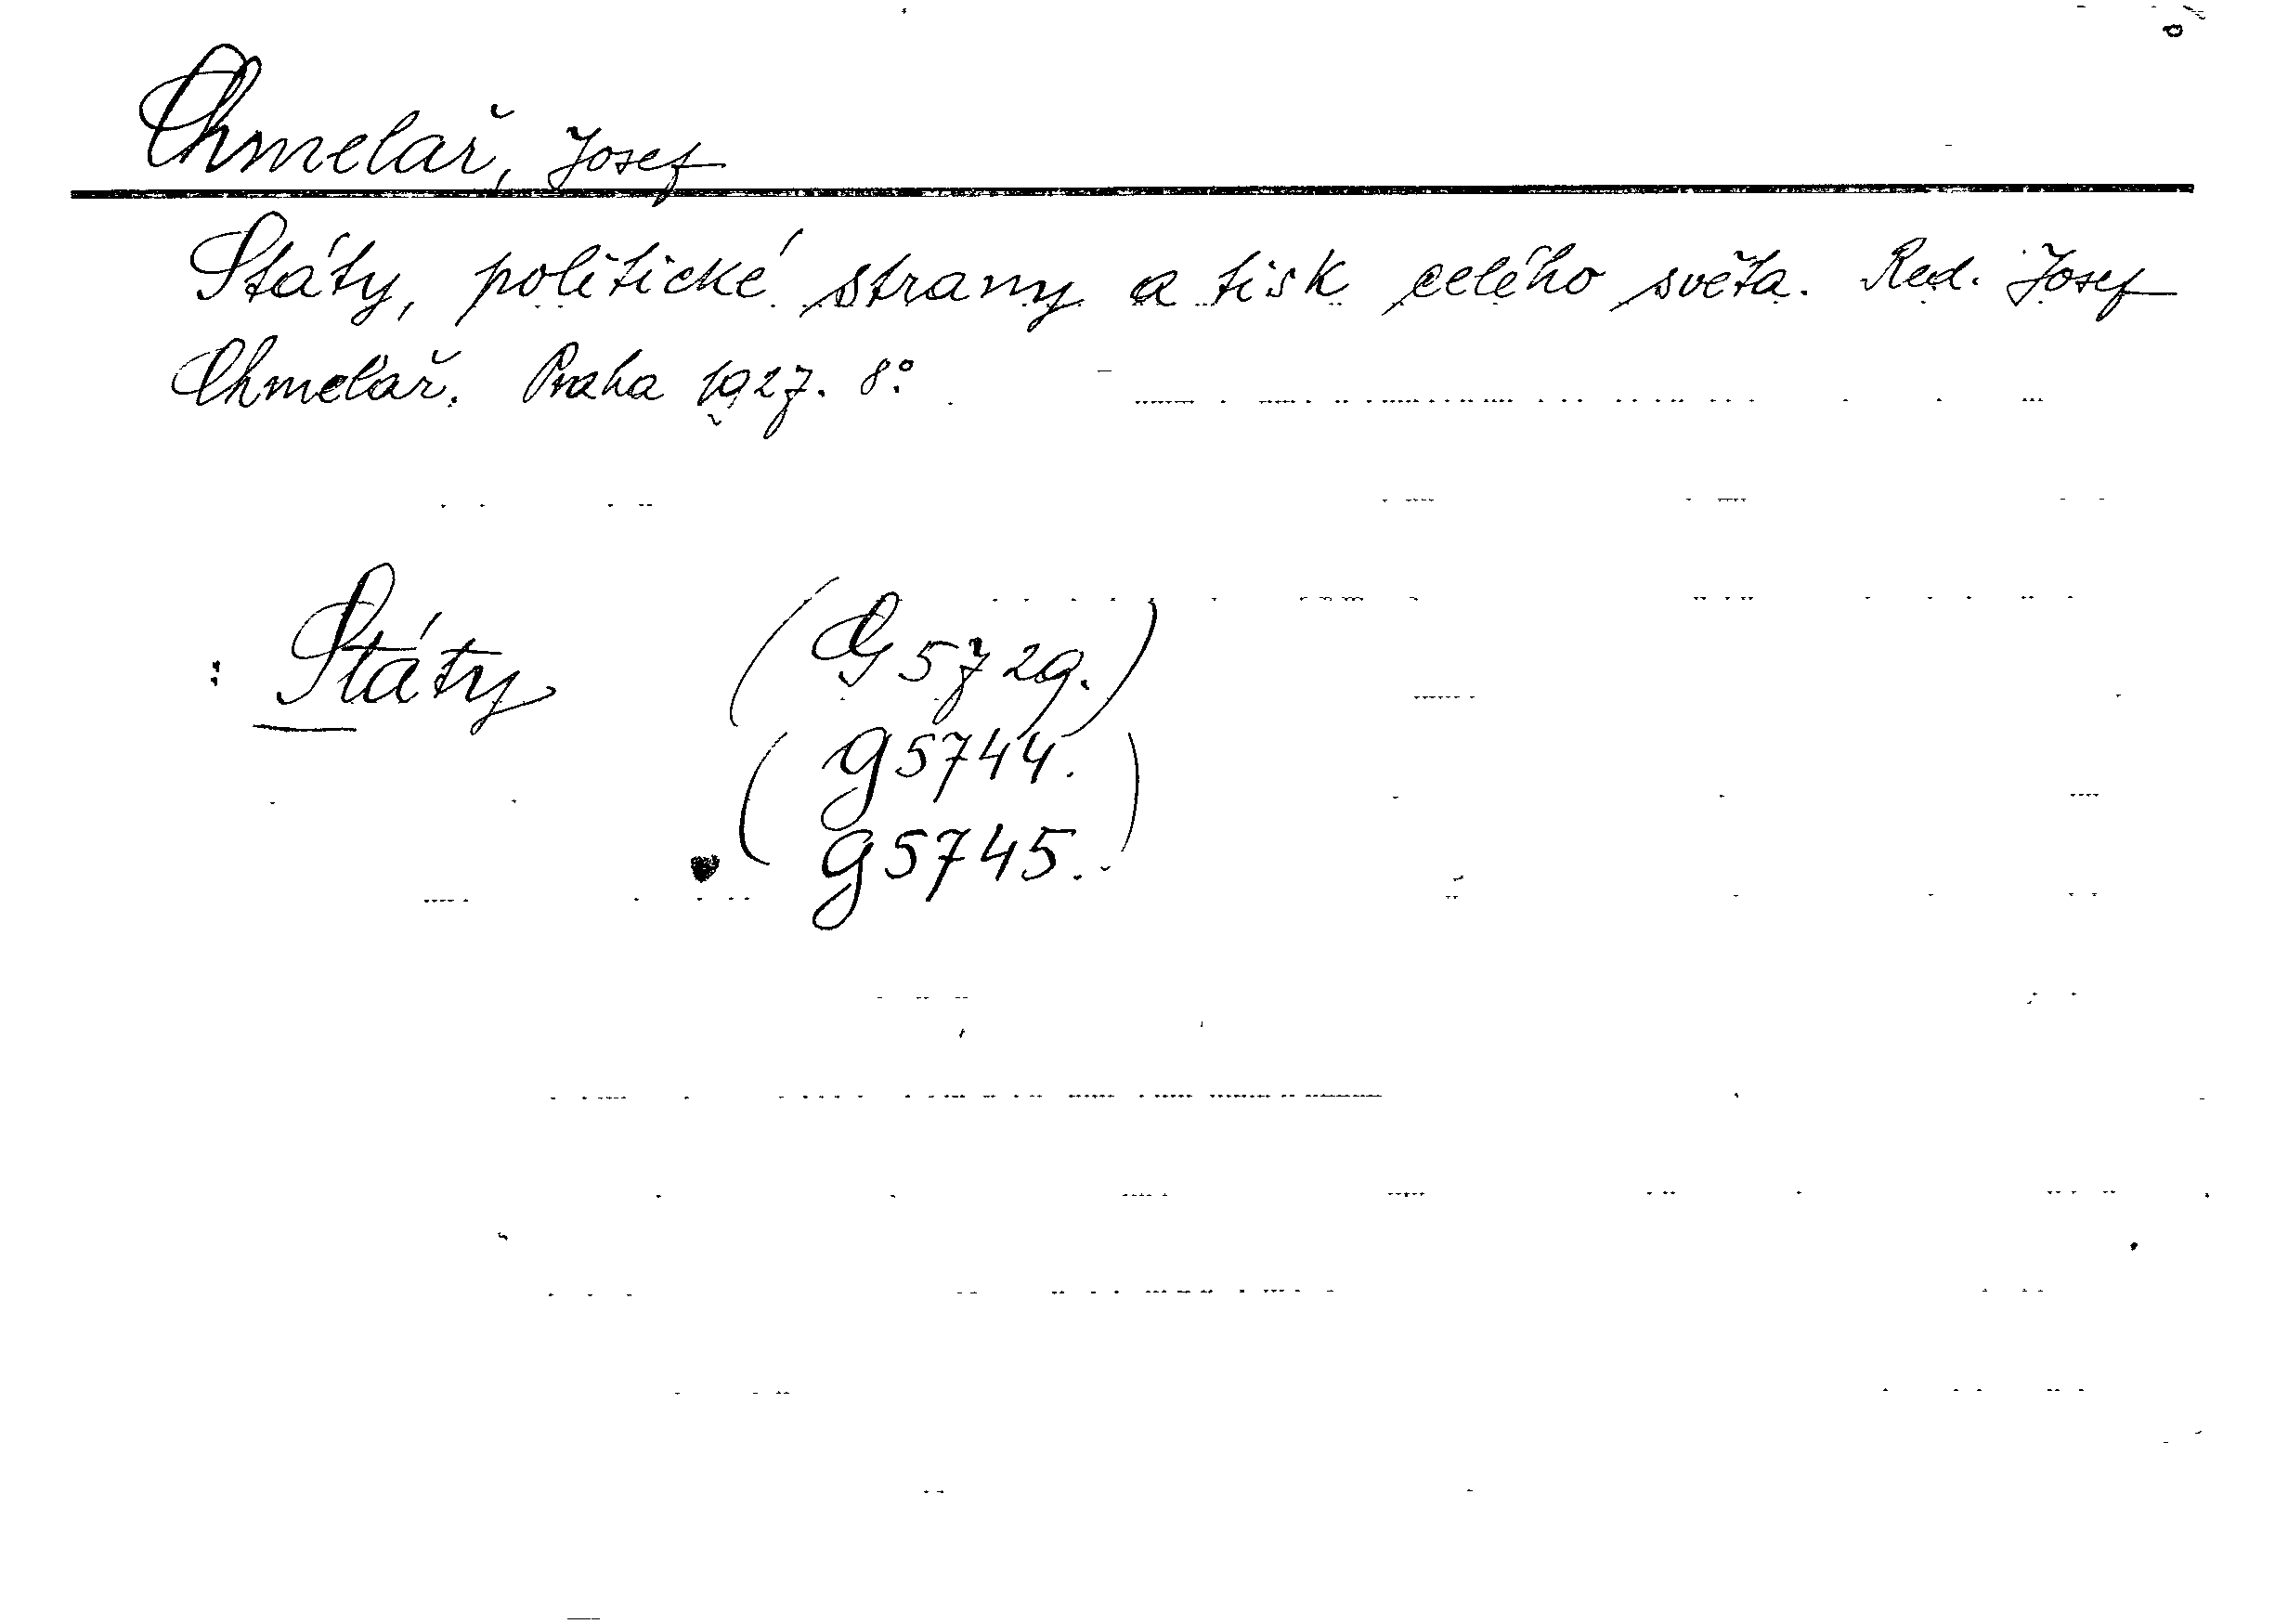 Chmelař, Josef
Státy, politické strany a tisk celého světa. Red. Josef
Chmelař. Praha 1927. 8°.
: Státy (G 5729.)
(g 5744.
g 5745.)